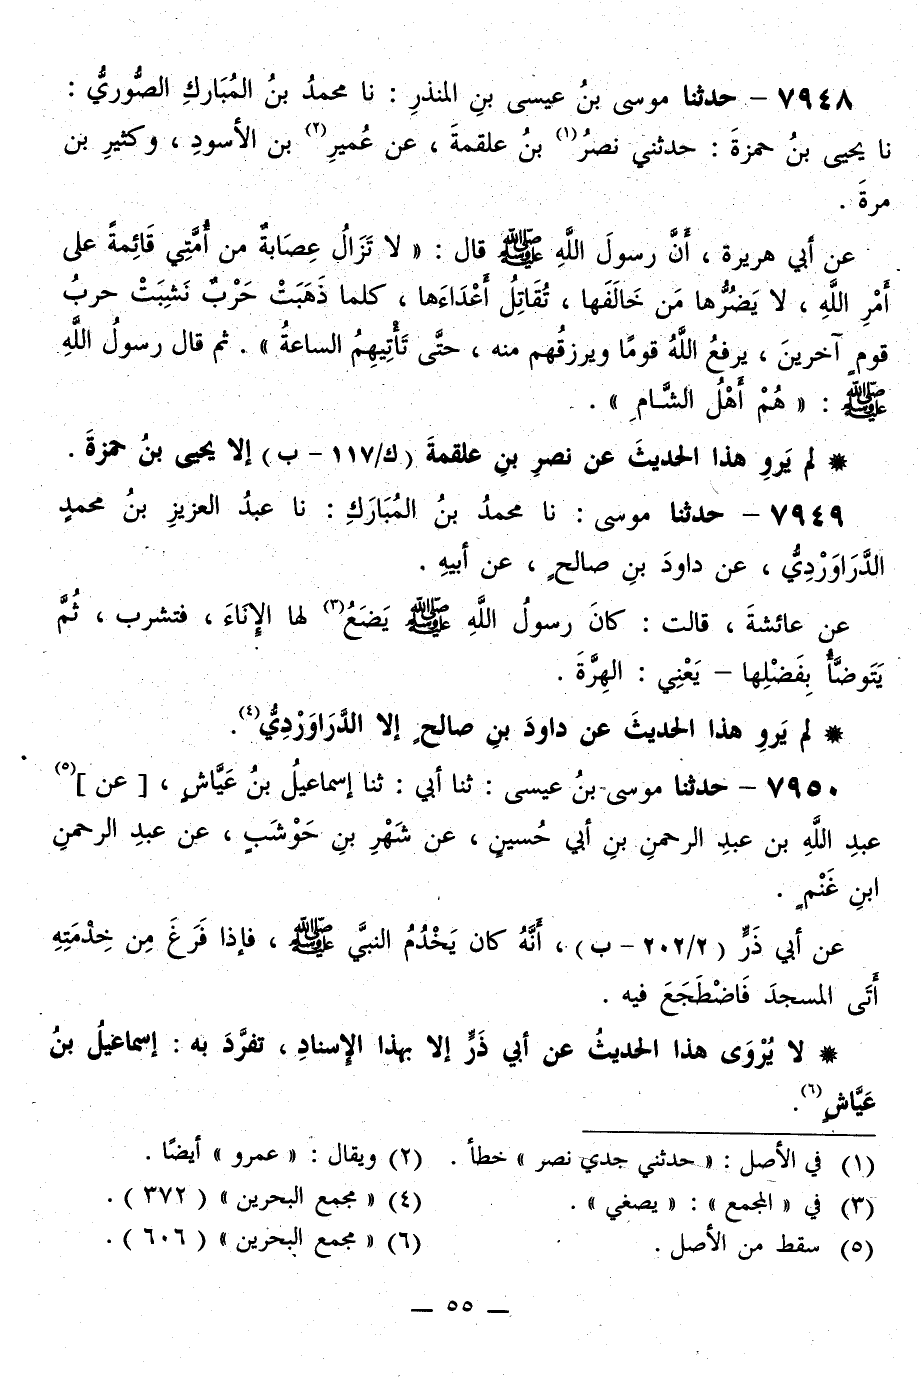 ٧٩٤٨ - حدثنا موسى بنُ عيسى بنِ المنذرِ : نا محمدُ بنُ المُبَاركِ الصُّوريُّ :
نا يحيى بنُ حمزةَ : حدثني نصرُ(١) بنُ علقمةَ ، عن عُميرِ(٢) بن الأسودِ ، وكثيرِ بن
مرةَ .
عن أبي هريرة ، أَنَّ رسولَ اللَّهِ ﷺ قال : « لا تَزَالُ عِصَابةٌ من أُمَّتِي قَائِمةً على
أَمْرِ اللَّهِ ، لا يَضُرُّها مَن خَالَفَها ، تُقَاتِلُ أَعْدَاءَها ، كلما ذَهَبَتْ حَرْبٌ نَشِبَتْ حربُ
قومٍ آخرينَ ، يرفعُ اللَّهُ قومًا ويرزقُهم منه ، حتَّى تَأْتِيهِمُ الساعةُ » . ثم قال رسولُ اللَّهِ
ﷺ : « هُمْ أَهْلُ الشَّامِ » .
* لم يَروِ هذا الحديثَ عن نصرِ بنِ علقمةَ (ك/١١٧ - ب) إلا يحيى بنُ حمزةَ .
٧٩٤٩ - حدثنا موسى : نا محمدُ بنُ المُبَارَكِ : نا عبدُ العزيزِ بنُ محمدٍ
الدَّرَاوَرْدِيُّ ، عن داودَ بنِ صالحٍ ، عن أبيهِ .
عن عائشةَ ، قالت : كانَ رسولُ اللَّهِ ﷺ يَضَعُ(٣) لها الإِنَاءَ ، فتشرب ، ثُمَّ
يَتَوضَّأُ بِفَضْلِها - يَعْنِي : الهِرَّةَ .
* لم يَروِ هذا الحديثَ عن داودَ بنِ صالحٍ إلا الدَّرَاوَرْدِيُّ(٤).
٧٩٥٠ - حدثنا موسى بنُ عيسى : ثنا أبي : ثنا إسماعيلُ بنُ عَيَّاشٍ ، [ عن ](٥)
عبدِ اللَّهِ بن عبدِ الرحمنِ بنِ أبي حُسينٍ ، عن شَهْرِ بنِ حَوْشَبٍ ، عن عبدِ الرحمنِ
ابنِ غَنْمٍ .
عن أبي ذَرٍّ (٢٠٢/٢ - ب) ، أَنَّهُ كان يَخْدُمُ النبيَّ ﷺ ، فإذا فَرَغَ مِن خِدْمَتِهِ
أَتَى المسجدَ فَاضْطَجَعَ فيه .
* لا يُرْوَى هذا الحديثُ عن أبي ذَرٍّ إلا بهذا الإسنادِ ، تفرَّدَ به : إسماعيلُ بنُ
عَيَّاشٍ(٦).
(١) في الأصل : « حدثني جدي نصر » خطأ . (٢) ويقال : « عمرو » أيضًا .
(٣) في « المجمع » : « يصغي » . (٤) « مجمع البحرين » ( ٣٧٢ ) .
(٥) سقط من الأصل . (٦) « مجمع البحرين » ( ٦٠٦ ) .
— ٥٥ —